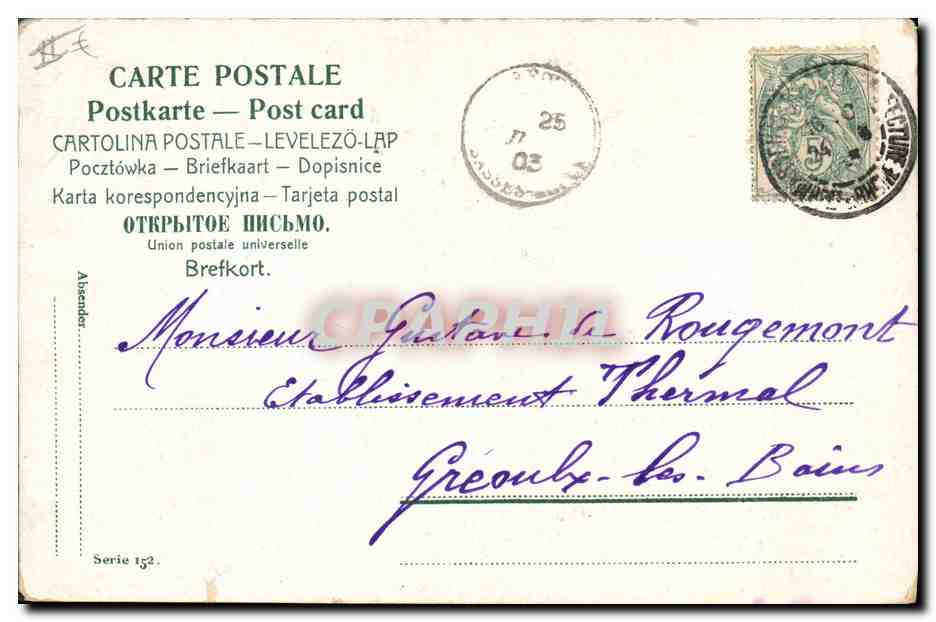 CARTE POSTALE
Postkarte — Post card
CARTOLINA POSTALE – LEVELEZÖ-LAP
Pocztówka – Briefkaart – Dopisnice
Karta korespondencyjna – Tarjeta postal
ОТКРЫТОЕ ПИСЬМО.
Union postale universelle
Brefkort.
Absender
25
03
BASSES-
5
Monsieur Gustave de Rougemont
Etablissement Thermal
Gréoulx-les-Bains
Serie 152.
CPAPHIL